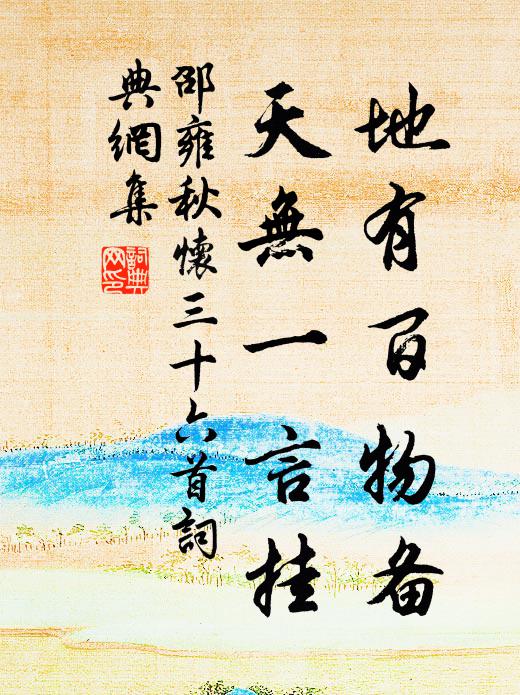 地有百物备
天無一言挂
邵雍秋懷三十六首詞
典網集
詞典
网印